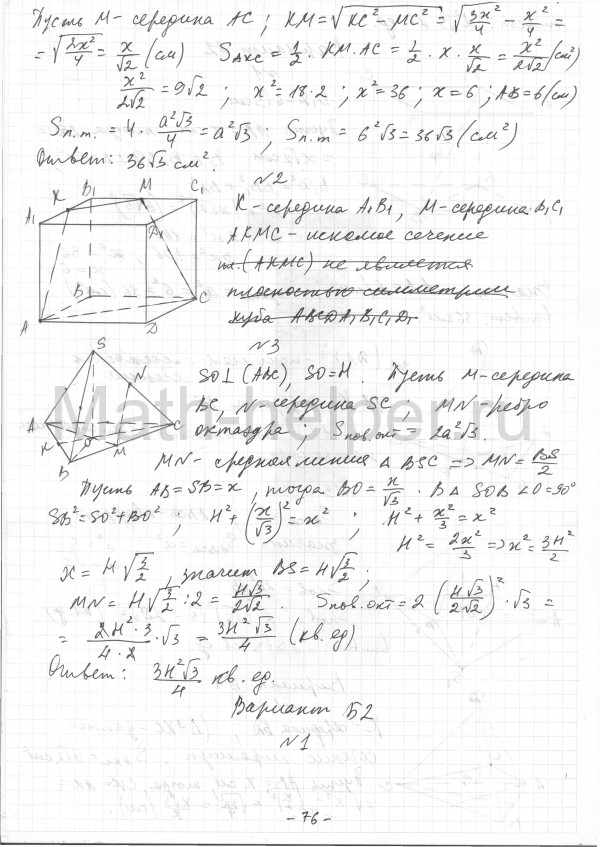 Пусть M - середина AC ; KM = √(KC² - MC²) = √(3x²/4 - x²/4) =
= √(2x²/4) = x/√2 (см) S_AKC = 1/2 · KM · AC = 1/2 · x · x/√2 = x²/2√2 (см²)
x²/2√2 = 9√2 ; x² = 18·2 ; x² = 36 ; x = 6 ; AB = 6 (см)
S п.т. = 4 · a²√3/4 = a²√3 ; S п.т = 6²√3 = 36√3 (см²)
Ответ: 36√3 см².
N2
K B₁ M C₁
A₁ D₁
B C
A D
K - середина A₁B₁, M - середина B₁C₁
AKMC - искомое сечение
пл. (AKMC) не является
плоскостью симметрии
куба ABCDA₁B₁C₁D₁
N3
S
N
A C
K O M
B
SO⊥(ABC), SO=H. Пусть M-середина
BC, N-середина SC ; MN-ребро
октаэдра ; S пов.окт = 2a²√3.
MN - средняя линия △ BSC => MN = BS/2
Пусть AB = SB = x, тогда BO = x/√3 . В △ SOB ∠O = 90°
SB² = SO² + BO² ; H² + (x/√3)² = x² ; H² + x²/3 = x²
H² = 2x²/3 => x² = 3H²/2
x = H√(3/2) , значит BS = H√(3/2) ;
MN = H√(3/2) : 2 = H√3/2√2 . S пов.окт = 2 (H√3/2√2)² · √3 =
= 2H²·3/4·2 · √3 = 3H²√3/4 (кв. ед)
Ответ: 3H²√3/4 кв. ед.
Вариант Б2
N1
- 76 -
Math-helper.ru